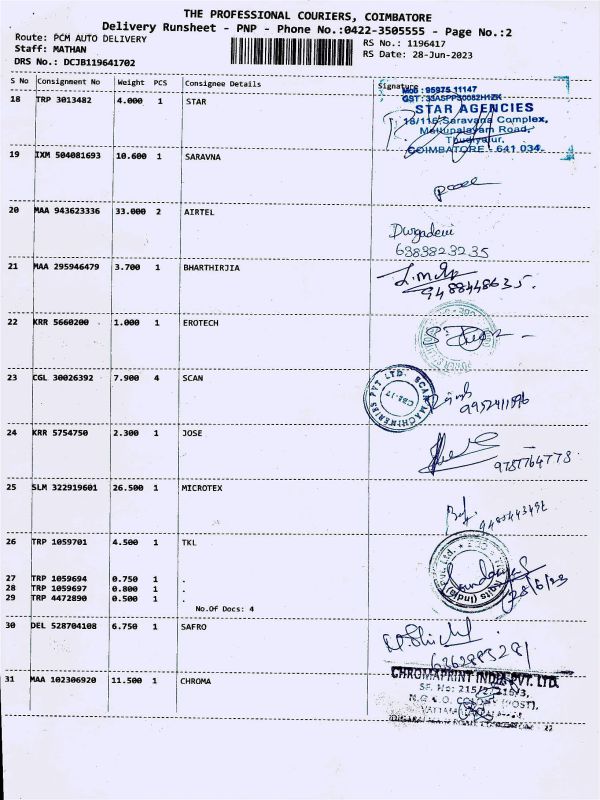 THE PROFESSIONAL COURIERS, COIMBATORE
Delivery Runsheet - PNP - Phone No.:0422-3505555 - Page No.:2
Route: PCM AUTO DELIVERY
RS No.: 1196417
Staff: MATHAN
RS Date: 28-Jun-2023
DRS No.: DCJB119641702
S No Consignment No Weight PCS Consignee Details Signature
18 TRP 3013482 4.000 1 STAR
STAR AGENCIES
18/116 Saravana Complex,
Mettupalayam Road,
Thudiyalur,
COIMBATORE - 641 034.
19 IXM 504081693 10.600 1 SARAVNA
20 MAA 943623336 33.000 2 AIRTEL
Durgadevi
6383823235
21 MAA 295946479 3.700 1 BHARTHIRJIA
9488448635.
22 KRR 5660200 1.000 1 EROTECH
23 CGL 30026392 7.900 4 SCAN
SCAN MACHINERIES PVT LTD.
CBE-17
24 KRR 5754750 2.300 1 JOSE
9787764773
25 SLM 322919601 26.500 1 MICROTEX
26 TRP 1059701 4.500 1 TKL
27 TRP 1059694 0.750 1 .
28 TRP 1059697 0.800 1 .
29 TRP 4472890 0.500 1 .
28/6/23
No.Of Docs: 4
30 DEL 528704108 6.750 1 SAFRO
6362883281
31 MAA 102306920 11.500 1 CHROMA
CHROMAPRINT INDIA PVT. LTD.